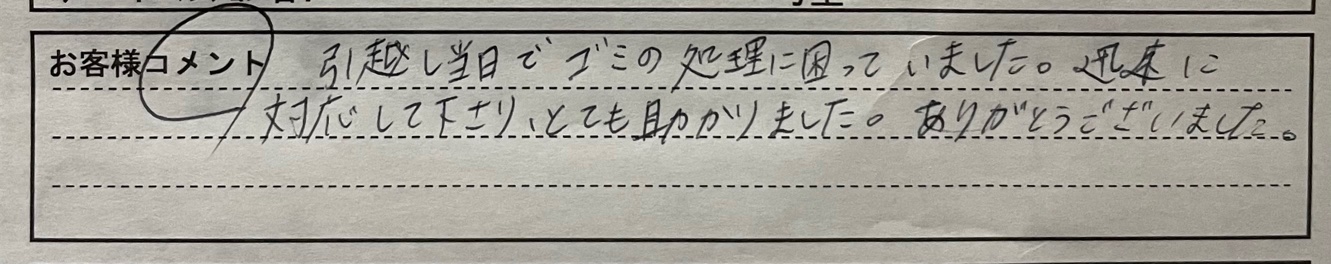 お客様コメント 引越し当日でゴミの処理に困っていました。迅速に
対応して下さり、とても助かりました。ありがとうございました。